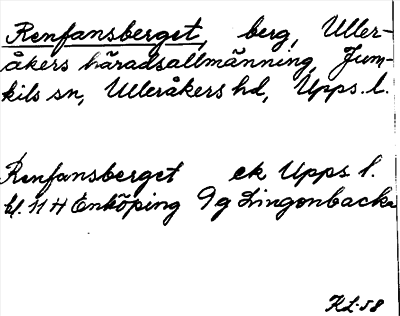 Renfansberget, berg, Uller-
åkers häradsallmänning, Jum-
kils sn, Ulleråkers hd, Upps. l.
Renfansberget ek Upps l.
bl. 11 H Enköping 9g Lingonbacka
KL-58